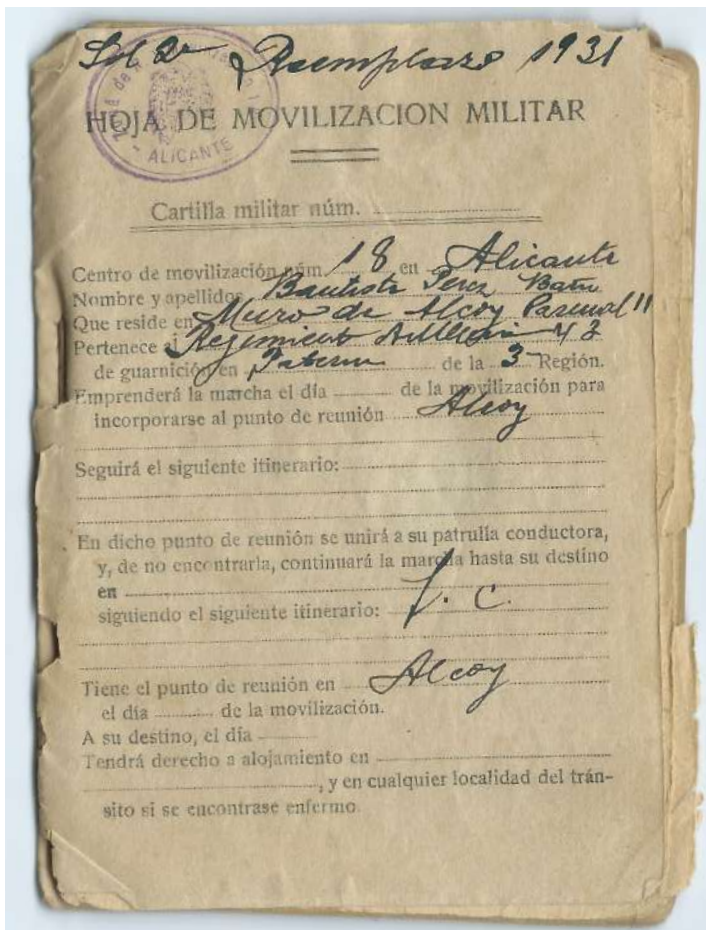 Sol 2º Reemplazo 1931
HOJA DE MOVILIZACION MILITAR
ALICANTE
Cartilla militar núm.
Centro de movilización núm. 18 en Alicante
Nombre y apellidos Bautista Perez
Que reside en Muro de Alcoy Pascual 11
Pertenece al Regimiento Artilleria
de guarnición en Paterna de la 3 Región.
Emprenderá la marcha el día de la movilización para
incorporarse al punto de reunión Alcoy
Seguirá el siguiente itinerario:
En dicho punto de reunión se unirá a su patrulla conductora,
y, de no encontrarla, continuará la marcha hasta su destino
en
siguiendo el siguiente itinerario: f. c.
Tiene el punto de reunión en Alcoy
el día de la movilización.
A su destino, el día
Tendrá derecho a alojamiento en
, y en cualquier localidad del trán-
sito si se encontrase enfermo.